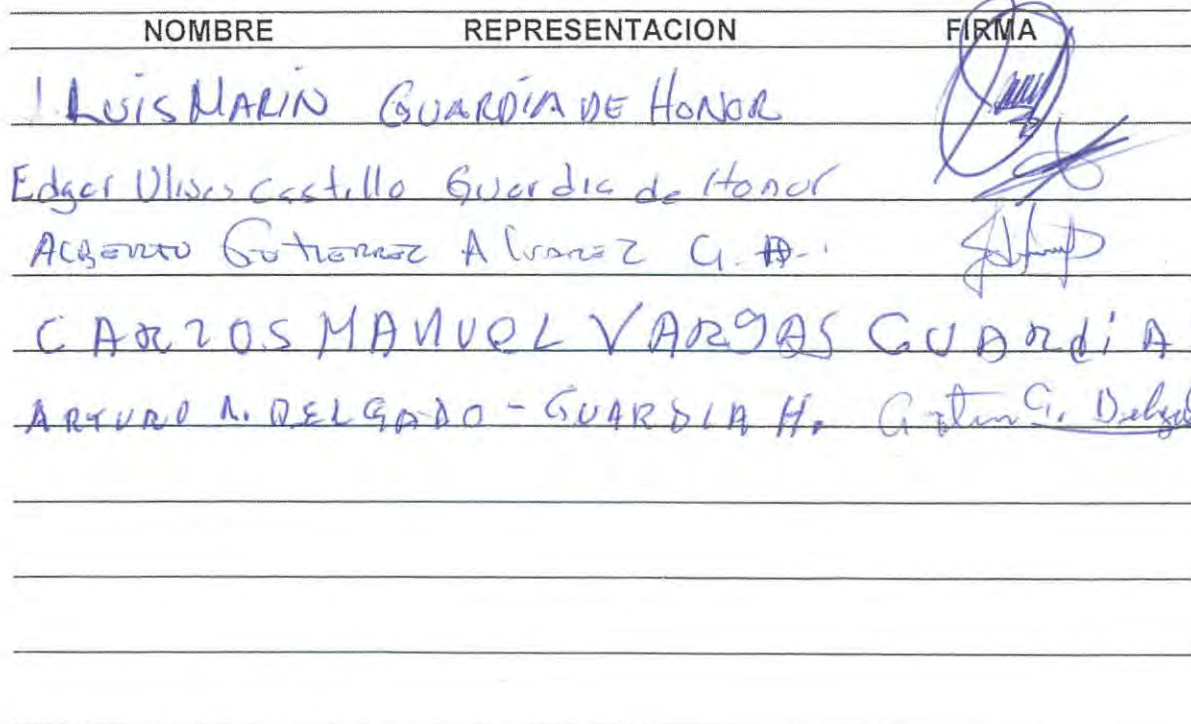 NOMBRE REPRESENTACION FIRMA
LUIS MARIN GUARDÍA DE HONOR
Edgar Ulises Castillo Guardia de Honor
ALBERTO GUTIERREZ Alvarez G. H.
CARLOS MANUEL VARGAS GUARDIA
ARTURO A. DELGADO - GUARDIA H. G. Delgad